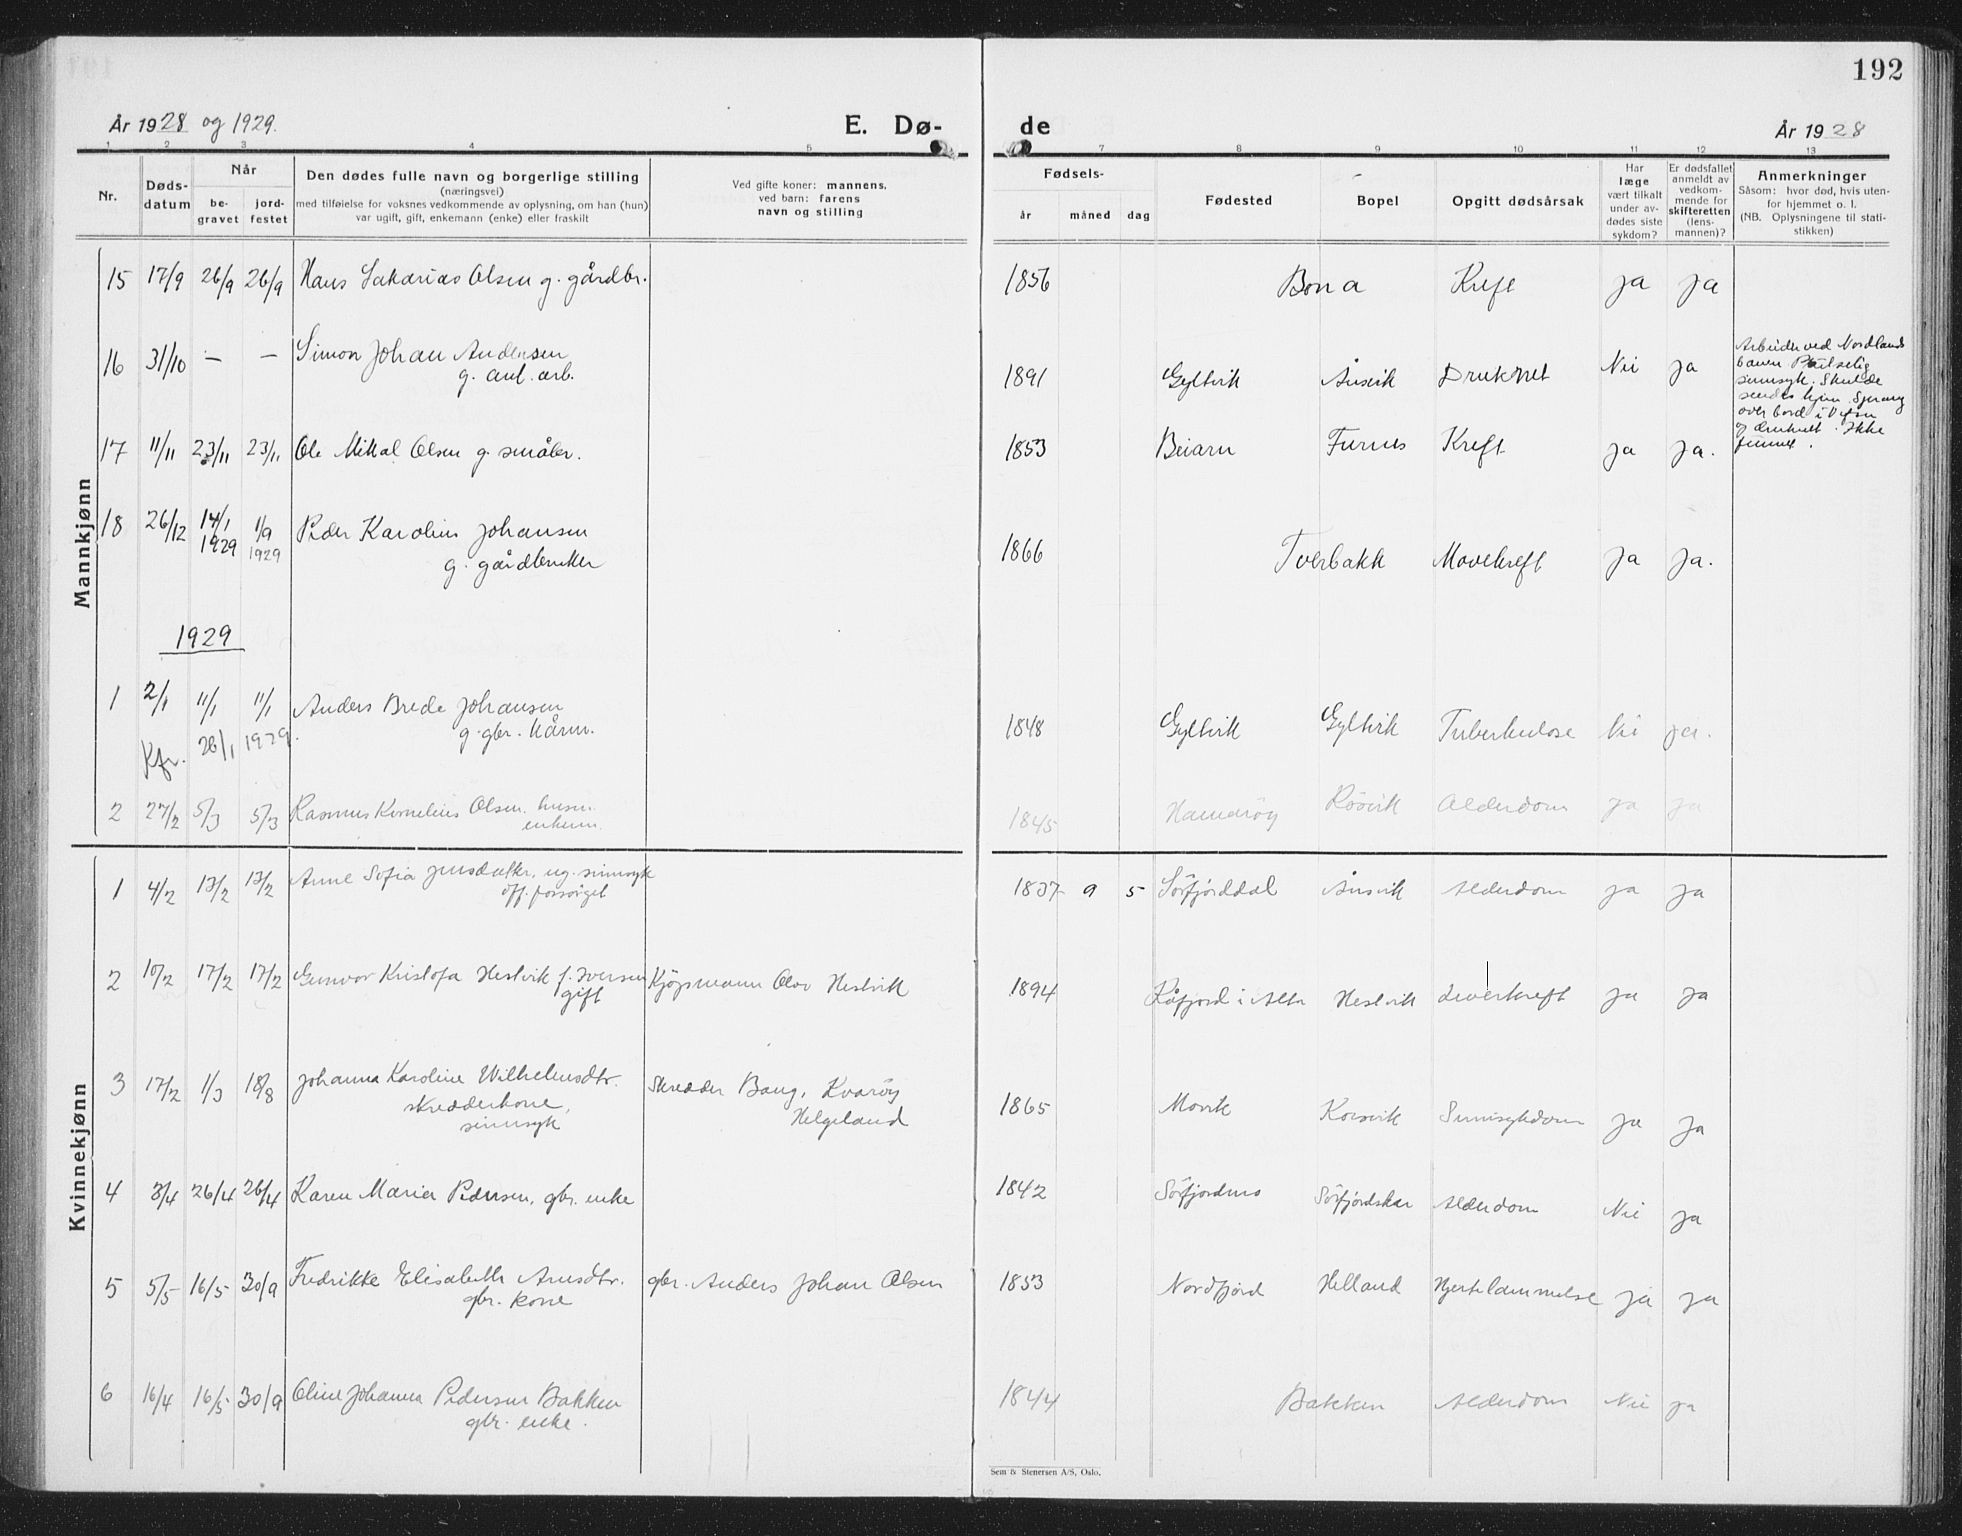 192
År 1928 og 1929.
E. Dø-
de
År 1928
1 2 3 4 5 7 8 9 10 11 12 13
Nr.
Døds-
datum
Når
be-
gravet
jord-
festet
Den dødes fulle navn og borgerlige stilling
(næringsvei)
med tilføielse for voksnes vedkommende av oplysning, om han (hun)
var ugift, gift, enkemann (enke) eller fraskilt
Ved gifte koner: mannens,
ved barn: farens
navn og stilling
Fødsels-
år måned dag
Fødested
Bopel
Opgitt dødsårsak
Har
læge
vært tilkalt
under av-
dødes siste
sykdom?
Er dødsfallet
anmeldt av
vedkom-
mende for
skifteretten
(lens-
mannen)?
Anmerkninger
Såsom: hvor død, hvis uten-
for hjemmet o. l.
(NB. Oplysningene til stati-
stikken)
Mannkjønn
15 17/9 26/9 26/9 Hans Sakarias Olsen g. gårdbr. 1856 Bona Kreft ja ja
16 31/10 — — Simon Johan Andersen 1891 Gyltvik Åsvik Druknet Nei ja
g. anl. arb.
Arbeider ved Nordlands
banen Plutselig
sinnsyk. Skulde
sendes hjem. Sprang
over bord i Vefsn
og druknet. Ikke
funnet.
17 11/11 23/11 23/11 Ole Mikal Olsen g. småbr. 1853 Beiarn Furnes Kreft ja ja.
18 26/12 14/1 1929 1/9 1929 Peder Karolius Johansen 1866 Tverbakk Mavekreft ja ja.
g. gårdbruker
1929
1 2/1 11/1 11/1 Anders Brede Johansen 1848 Gyltvik Gyltvik Tuberkulose Nei ja.
Kfr. 26/1 1929. g. gbr. kårm.
2 27/2 5/3 5/3 Rasmus Kornelius Olsen. husm. 1845 Hamarøy Røsvik Alderdom ja ja
enkem.
Kvinnekjønn
1 4/2 13/2 13/2 Anne Sofia Jensdatter, ug. sinnsyk 1837 9 5 Sørfjorddal Åsvik Alderdom ja ja
off. forsørget
2 10/2 17/2 17/2 Gunvor Kristofa Hestvik f. Iversen Kjøpmann Olav Hestvik 1894 Råfjord i Alta Hestvik Leverkreft ja ja
gift
3 17/2 1/3 18/8 Johanna Karoline Wilhelmsdtr. Skredder Bang, Kvarøy 1865 Movik Korsvik Sinnsykdom ja ja
skredderkone, Helgeland
sinnsyk
4 3/4 26/4 26/4 Karen Maria Pedersen, gbr. enke 1842 Sørfjordmo Sørfjordskar Alderdom Nei ja
5 5/5 16/5 30/9 Fredrikke Elisabeth Arnsdtr. gbr. Anders Johan Olsen 1853 Nordfjord Helland Hjertelammelse ja ja
gbr. kone
6 16/4 16/5 30/9 Oline Johanna Pedersen Bakken 1844 Bakken Alderdom Nei ja
gbr. enke.
Sem & Stenersen A/S, Oslo.